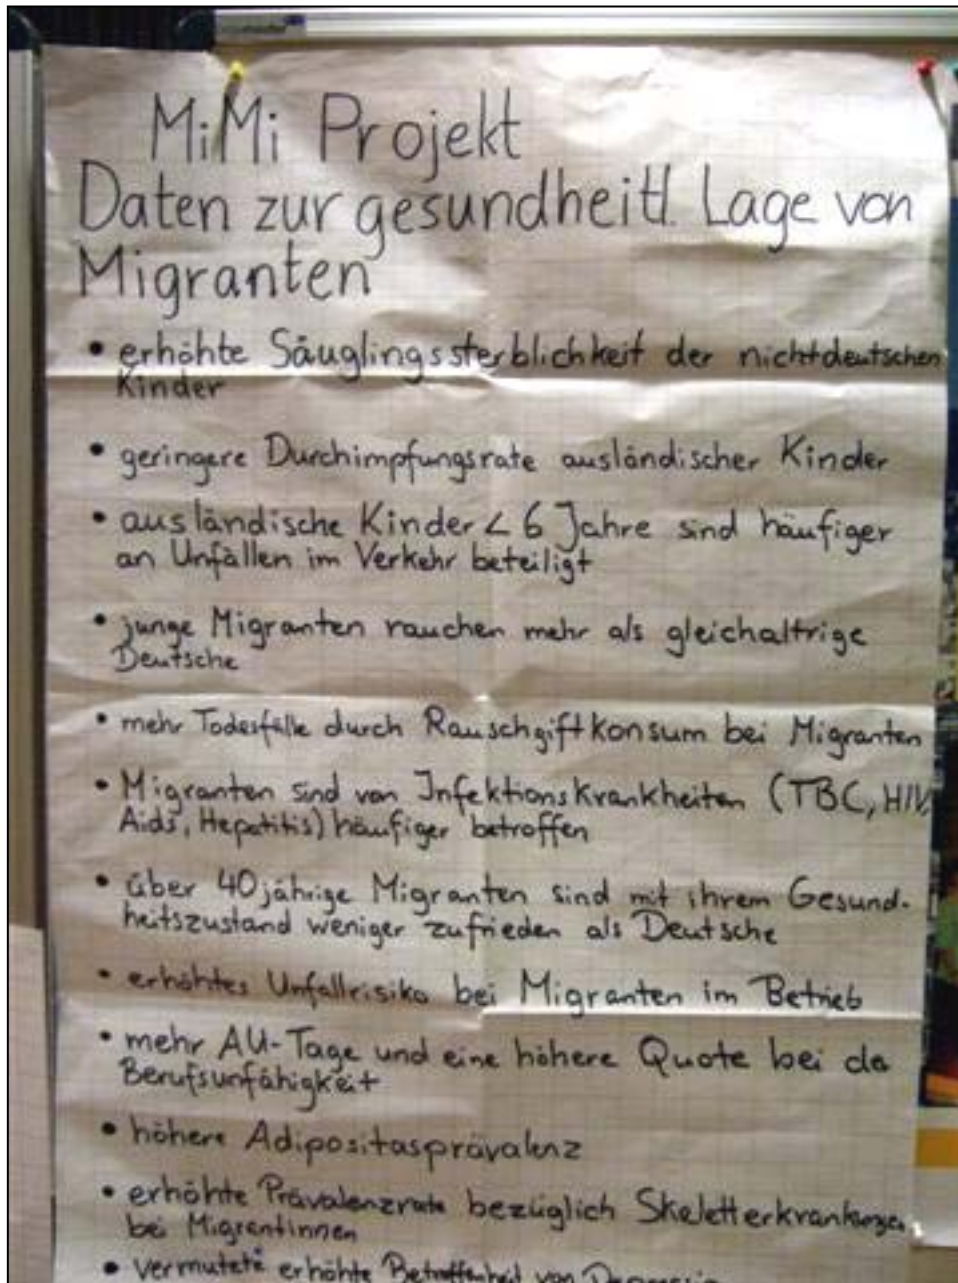 MiMi Projekt
Daten zur gesundheitl. Lage von
Migranten
• erhöhte Säuglingssterblichkeit der nichtdeutschen
Kinder
• geringere Durchimpfungsrate ausländischer Kinder
• ausländische Kinder < 6 Jahre sind häufiger
an Unfällen im Verkehr beteiligt
• junge Migranten rauchen mehr als gleichaltrige
Deutsche
• mehr Todesfälle durch Rauschgiftkonsum bei Migranten
• Migranten sind von Infektionskrankheiten (TBC, HIV,
Aids, Hepatitis) häufiger betroffen
• über 40jährige Migranten sind mit ihrem Gesund-
heitszustand weniger zufrieden als Deutsche
• erhöhtes Unfallrisiko bei Migranten im Betrieb
• mehr AU-Tage und eine höhere Quote bei de
Berufsunfähigkeit
• höhere Adipositasprävalenz
• erhöhte Prävalenzrate bezüglich
bei Migrantinnen
• vermutete erhöhte Betroffenheit von